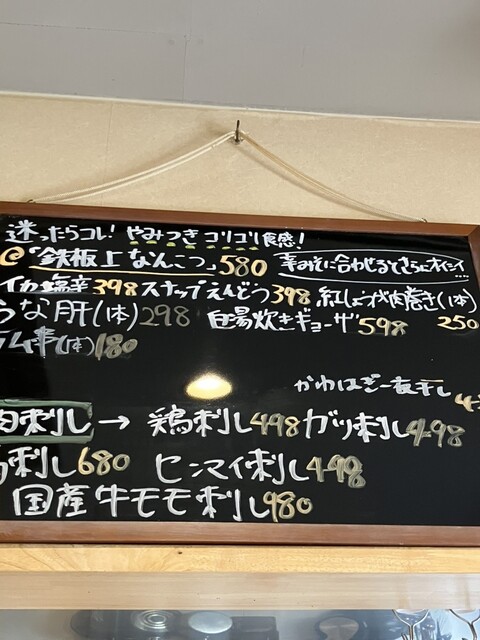 迷ったらコレ! やみつきコリコリ食感!
@「鉄板上なんこつ」580 辛みそに合わせるとさらにオイシイ…
イカ塩辛398 スナップえんどう398 紅しょうが肉巻き(1本)
うな肝(1本)298 白湯炊きギョーザ598 250
(1本)180
かわはぎ一夜干し
肉刺し → 鶏刺し498 ガツ刺し498
刺し680 センマイ刺し498
国産牛モモ刺し980